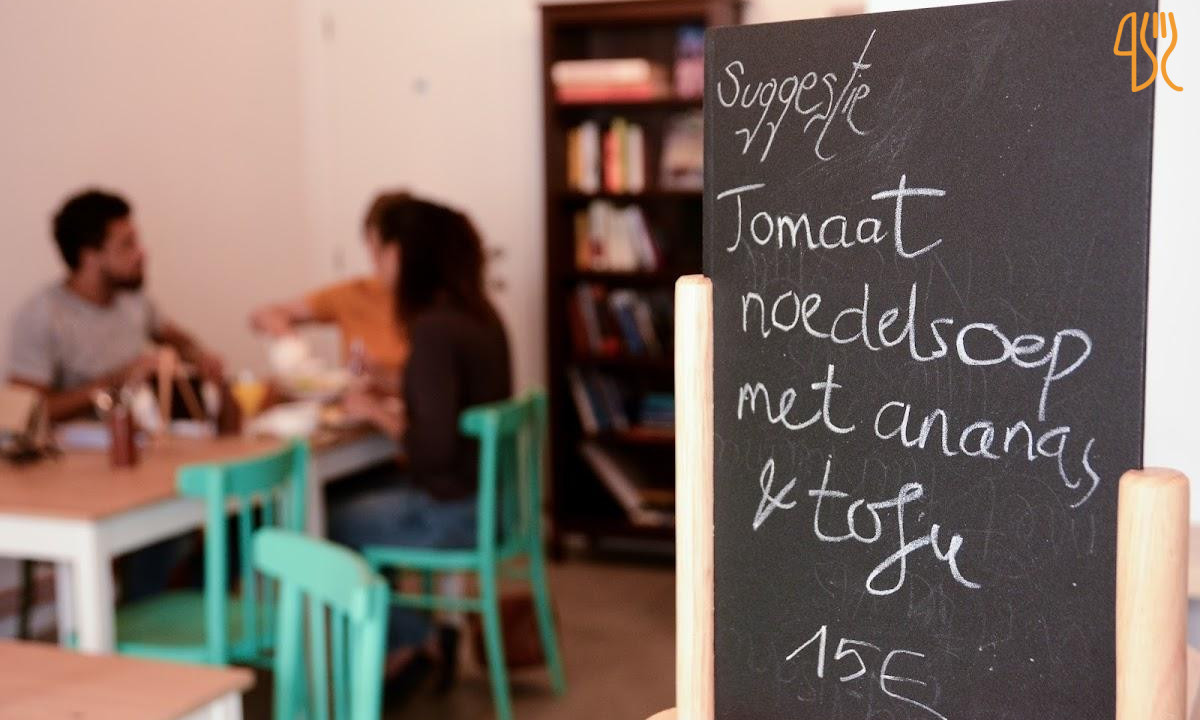 Suggestie
Tomaat
noedelsoep
met ananas
& tofu
15€